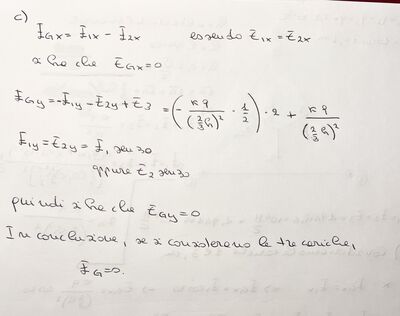 c)
E̅Gx = E̅1x - E̅2x essendo E̅1x = E̅2x
si ha che E̅Gx = 0
E̅Gy = -E̅1y - E̅2y + E̅3 = (- K q / (2/3 h)² · 1/2) · 2 + K q / (2/3 h)²
E̅1y = E̅2y = E̅1 sen 30
oppure E̅2 sen 30
quindi si ha che E̅Gy = 0
In conclusione, se si considerano le tre cariche,
E̅G = 0.